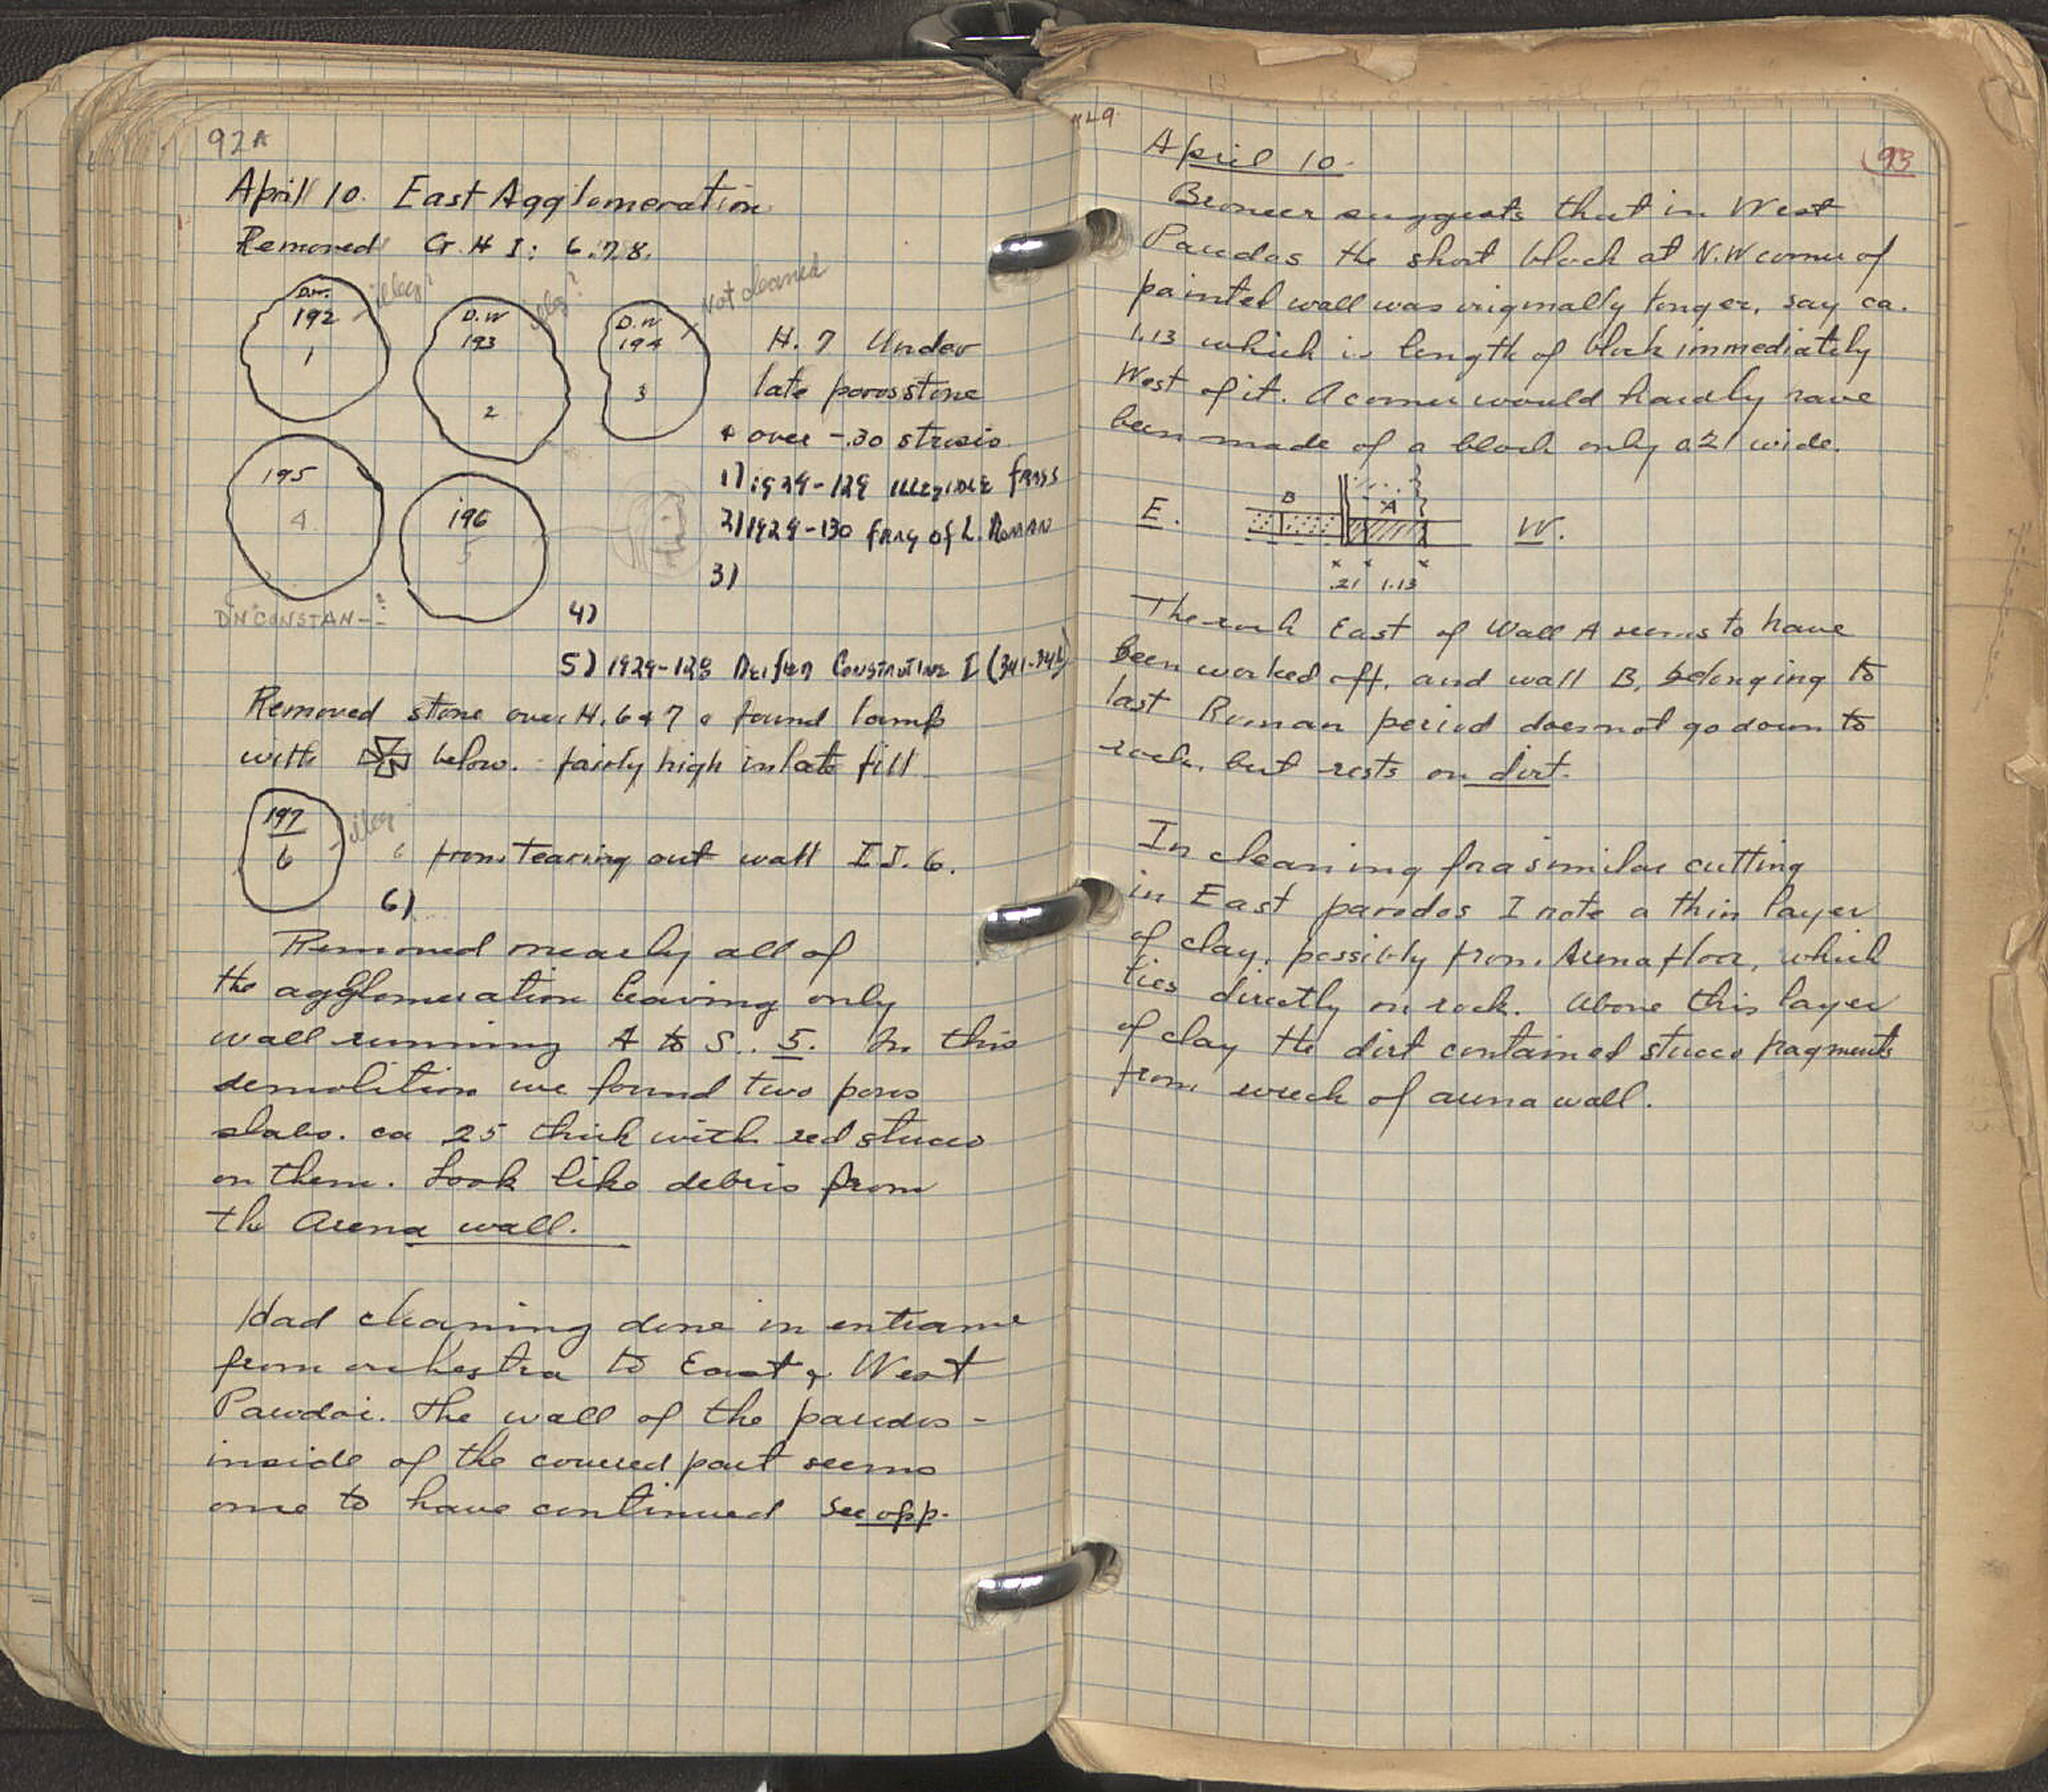 92A
April 10. East Agglomeration
Removed G. H I: 6.7.8.
D.W. 192 1 illeg?
D.W 193 2 illeg?
D.W 194 3 Not cleaned
H. 7 Under
late poros stone
& over -.30 strosis
195 4
196 5
1) 1929-129 illegible frags
2) 1929-130 frag of L. Roman
3)
DN CONSTAN--?
4)
5) 1929-128 Deified Constantine I (341-346)
Removed stone over H. 6 & 7 & found lamp
with below. fairly high in late fill
197 6 illeg
6 from tearing out wall I J. 6.
6)
Removed nearly all of
the agglomeration leaving only
wall running A to S.. 5. In this
demolition we found two poros
slabs. ca 25 thick with red stucco
on them. Look like debris from
the Arena wall.
Had cleaning done in entrance
from orchestra to East & West
Parodoi. The wall of the parodos -
inside of the covered part seems
once to have continued see opp.
29
April 10.
93
Broneer suggests that in West
Parodos the short block at N.W corner of
painted wall was originally longer, say ca.
1.13 which is length of block immediately
West of it. A corner would hardly have
been made of a block only 0.21 wide.
E. B A W.
.21 1.13
The rock East of Wall A seems to have
been worked off, and wall B, belonging to
last Roman period does not go down to
rock, but rests on dirt.
In cleaning for a similar cutting
in East parodos I note a thin layer
of clay, possibly from Arena floor, which
lies directly on rock. Above this layer
of clay the dirt contained stucco fragments
from wreck of arena wall.